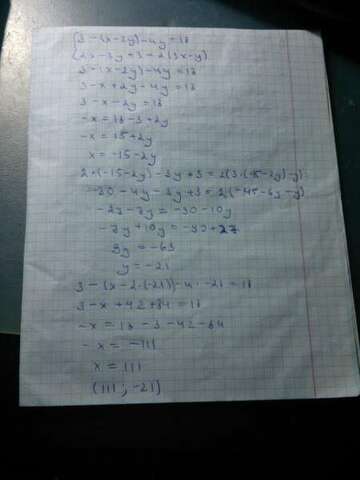 {3-(x-2y)-4y=18
{2x-3y+3=2(3x-y)
3-(x-2y)-4y=18
3-x+2y-4y=18
3-x-2y=18
-x=18-3+2y
-x=15+2y
x=-15-2y
2·(-15-2y)-3y+3=2(3·(-15-2y)-y)
-30-4y-3y+3=2(-45-6y-y)
-27-7y=-90-10y
-7y+10y=-90+27
3y=-63
y=-21
3-(x-2·(-21))-4·-21=18
3-x+42+84=18
-x=18-3-42-84
-x=-111
x=111
(111;-21)